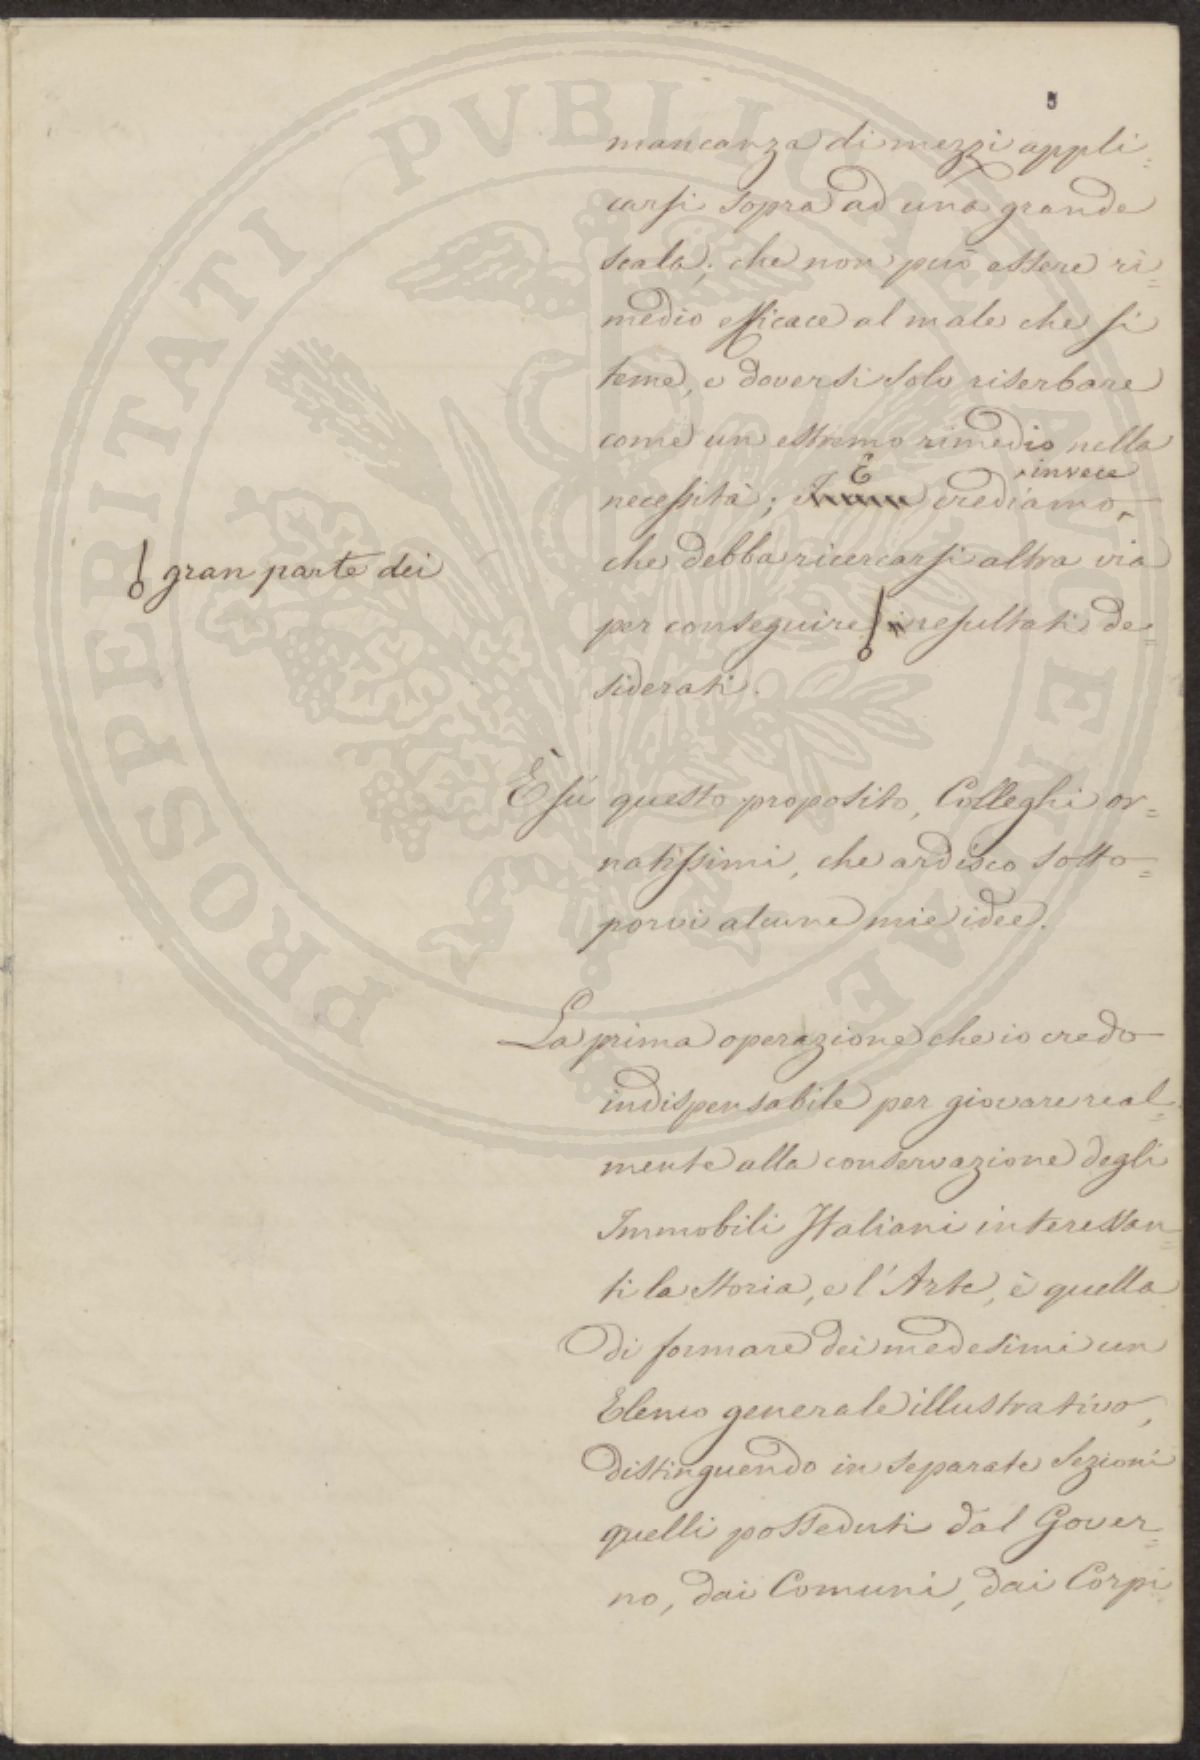 5
mancanza di mezzi appli=
carsi sopra ad una grande
scala; che non può essere ri=
medio efficace al male che si
teme, e doversi solo riserbare
come un estremo rimedio nella
necessità; E crediamo invece
che debba ricercarsi altra via
gran parte dei
per conseguire resultati de=
siderati.
È su questo proposito, Colleghi or=
natissimi, che ardisco sotto=
porvi alcune mie idee.
La prima operazione che io credo
indispensabile per giovare real=
mente alla conservazione degli
Immobili Italiani interessan=
ti la storia, e l'Arte, è quella
di formare dei medesimi un
Elenco generale illustrativo,
distinguendo in separate Sezioni
quelli posseduti dal Gover=
no, dai Comuni, dai Corpi
PROSPERITATI PVBLICAE AVGENDAE